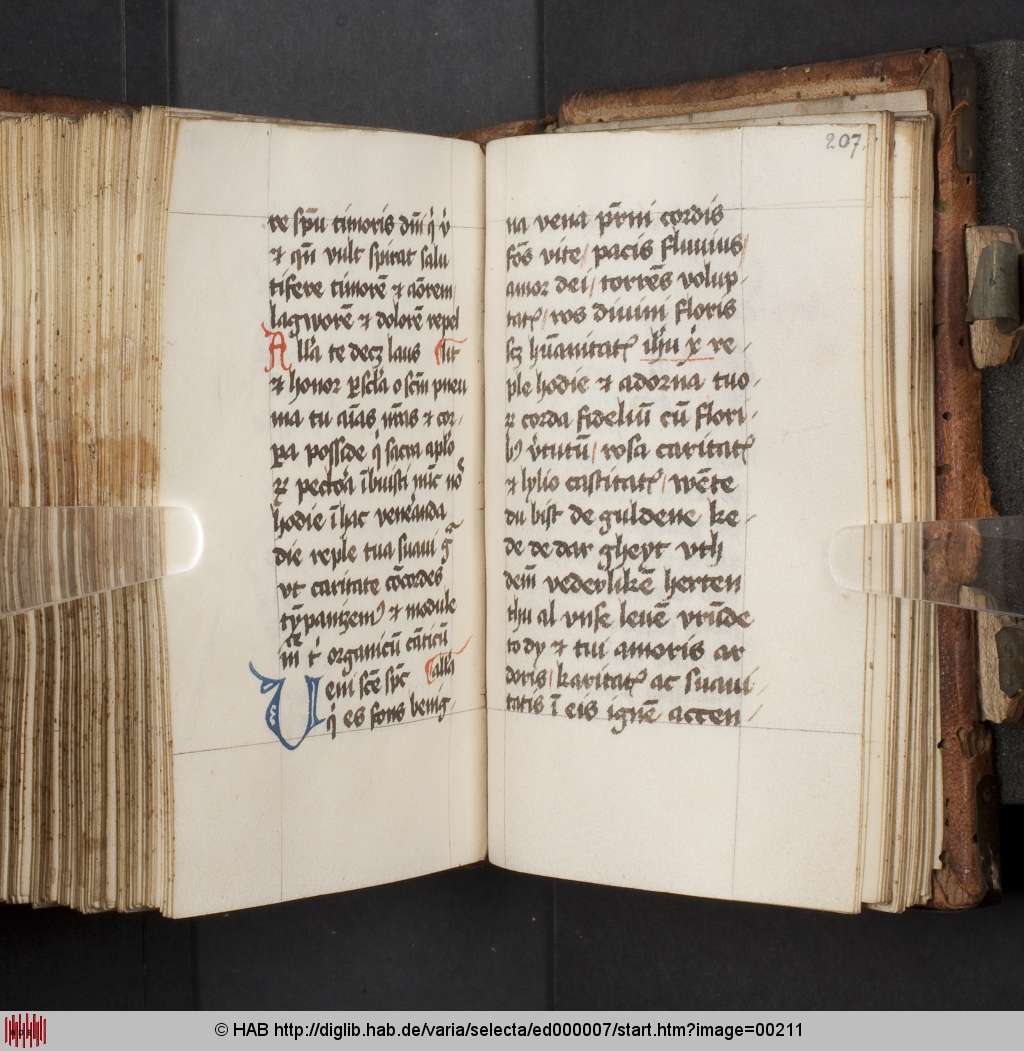 re spm̄ timoris dm̄ qͥ vͥ
⁊ qn̄ vult spirat salu
tifere timorē ⁊ aōrem
lagworē ⁊ dolorē repel
All'a te decꝫ laus lit
⁊ honor o scm̄ pneu
ma tu aīas nr̄as ⁊ cor-
ꝑa posside qͥ sacra aplo
ꝝ pectora ībuisti nūc
hodie ī hac
die reple tua suaui
vt caritate cōcordes
tȳpanizem⁹ ⁊ module
mͬ tͥ organicū cāticū
Veni scē spc all'a
qͥ es fons benig-
207.
na vena pr̄ni cordis
fōs vite / pacis fluuius /
amor dei / torrēs volup-
tatꝭ / ros diuini floris
scꝫ hūanitatꝭ ih̄u xͥ re-
ple hodie ⁊ adorna tuo-
ꝝ corda fideliū cū flori-
bꝰ vͥtutū / rosa caritatꝭ
⁊ lylio castitatꝭ / wēte
du bist de guldene ke-
de de dar gheyt vth
dem vederlikē herten
thu al vnse leuē vrūde
to dy ⁊ tui amoris ar
doris / karitatꝭ ac suaui-
tatis ī eis ignē accen-
© HAB http://diglib.hab.de/varia/selecta/ed000007/start.htm?image=00211